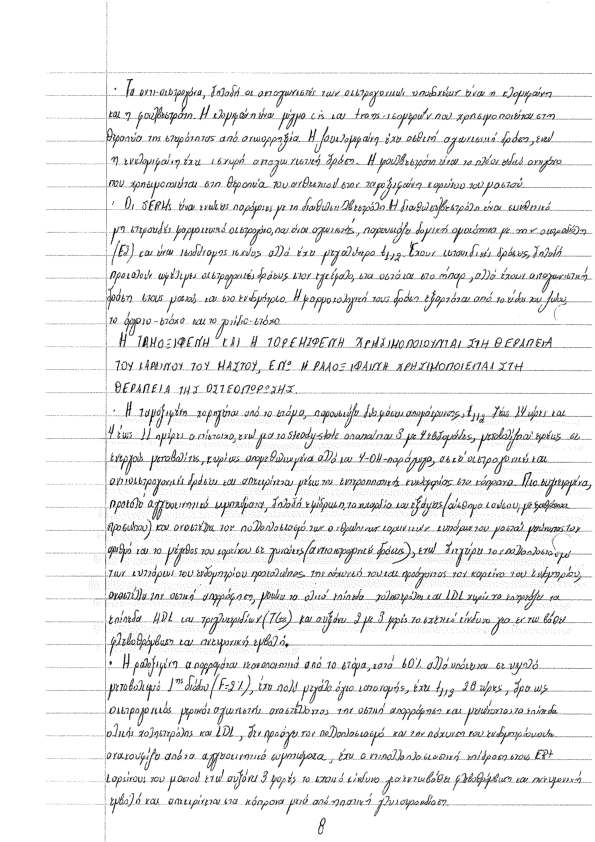 · Τα αντι-οιστρογόνα, δηλαδή οι ανταγωνιστές των οιστρογονικών υποδοχέων είναι η κλομιφαίνη
και η φουλβεστράτη. Η κλομιφαίνη είναι μίγμα cis και trans-ισομερών που χρησιμοποιείται στη
θεραπεία της στειρότητας από ανωορρηξία. Η ζουκλομιφαίνη έχει ασθενή αγωνιστική δράση, ενώ
η ενκλομιφαίνη έχει ισχυρή ανταγωνιστική δράση. Η φουλβεστράτη είναι το πλέον ειδικό
που χρησιμοποιείται στη θεραπεία του ανθεκτικού στην ταμοξιφαίνη καρκίνου του μαστού.
· Οι SERMs είναι ενώσεις παρόμοιες με τη διαιθυλστιλβεστρόλη. Η διαιθυλστιλβεστρόλη είναι συνθετικό
μη στεροειδές φαρμακευτικό οιστρογόνο, που είναι αγωνιστής, παρουσιάζει δομική ομοιότητα με την οιστραδιόλη
(E2) και είναι ισοδύναμης ισχύος αλλά έχει μεγαλύτερο t1/2. Έχουν ιστοειδικές δράσεις, δηλαδή
προκαλούν ωφέλιμες οιστρογονικές δράσεις στον εγκέφαλο, στα οστά και στο ήπαρ, αλλά έχουν ανταγωνιστική
δράση στους μαστούς και στο ενδομήτριο. Η φαρμακολογική τους δράση εξαρτάται από το είδος του ζώου,
το όργανο-στόχο και το γονίδιο-στόχο.
Η ΤΑΜΟΞΙΦΕΝΗ ΚΑΙ Η ΤΟΡΕΜΙΦΕΝΗ ΧΡΗΣΙΜΟΠΟΙΟΥΝΤΑΙ ΣΤΗ ΘΕΡΑΠΕΙΑ
ΤΟΥ ΚΑΡΚΙΝΟΥ ΤΟΥ ΜΑΣΤΟΥ, ΕΝΩ Η ΡΑΛΟΞΙΦΑΙΝΗ ΧΡΗΣΙΜΟΠΟΙΕΙΤΑΙ ΣΤΗ
ΘΕΡΑΠΕΙΑ ΤΗΣ ΟΣΤΕΟΠΟΡΩΣΗΣ.
· Η ταμοξιφένη χορηγείται από το στόμα, παρουσιάζει διφασική απομάκρυνση, t1/2 7 έως 14 ώρες και
4 έως 11 ημέρες αντίστοιχα, ενώ για το steady-state απαιτούνται 3 με 4 εβδομάδες, μεταβολίζεται σε
ενεργούς μεταβολίτες, κυρίως απομεθυλιωμένα αλλά και 4-OH-παράγωγα, ασκεί οιστρογονικές και
αντιοιστρογονικές δράσεις και απεκκρίνεται μέσω της εντεροηπατικής κυκλοφορίας στα κόπρανα. Πιο συγκεκριμένα,
προκαλεί αγγειοκινητικά συμπτώματα, δηλαδή εφίδρωση, ταχυκαρδία και εξάψεις (αίσθημα καύσου, με
προσώπου) και αναστέλλει τον πολλαπλασιασμό των καρκινικών κυττάρων του μαστού μειώνοντας τον
αριθμό και το μέγεθος του καρκίνου σε γυναίκες (αντιοιστρογονικές δράσεις), ενώ διεγείρει τον πολλαπλασιασμό
των κυττάρων του ενδομητρίου προκαλώντας την πάχυνσή του και προάγοντας τον καρκίνο του ενδομητρίου,
αναστέλλει την οστική απορρόφηση, μειώνει τα ολικά επίπεδα χοληστερόλης και LDL χωρίς να επηρεάζει τα
επίπεδα HDL και τριγλυκεριδίων (TGs) και αυξάνει 2 με 3 φορές το σχετικό κίνδυνο για εν τω βάθει
φλεβοθρόμβωση και πνευμονική εμβολή.
· Η ραλοξιφένη απορροφάται ικανοποιητικά από το στόμα, κατά 60% αλλά υπόκειται σε υψηλό
μεταβολισμό 1ης διόδου (F=2%), έχει πολύ μεγάλο όγκο κατανομής, έχει t1/2 28 ώρες, δρα ως
οιστρογονικός μερικός αγωνιστής αναστέλλοντας την οστική απορρόφηση και μειώνοντας τα επίπεδα
ολικής χοληστερόλης και LDL, δεν προάγει τον πολλαπλασιασμό και την πάχυνση του ενδομητρίου ούτε
ανακουφίζει από τα αγγειοκινητικά συμπτώματα, έχει αντιπολλαπλασιαστική επίδραση στους ER+
καρκίνους του μαστού ενώ αυξάνει 3 φορές το σχετικό κίνδυνο για εν τω βάθει φλεβοθρόμβωση και πνευμονική
εμβολή και απεκκρίνεται στα κόπρανα μετά από ηπατική γλυκουρονιδίωση.
8